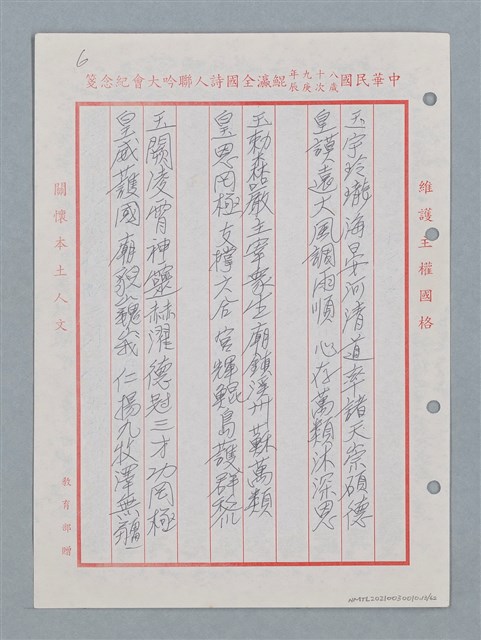 6
中華民國八十九年歲次庚辰鯤瀛全國詩人聯吟大會紀念箋
維護主權國格
玉宇玲瓏海晏河清道率諸天崇碩德
皇謨遠大風調雨順 心存萬類沐深恩
玉勅森嚴主宰眾生廟鎮溪州蘇萬類
皇恩罔極支撐六合 宮輝鯤島護群
玉闕凌霄神靈赫濯德冠三才功罔極
皇威護國廟貌巍峩 仁揚九牧澤無疆
關懷本土人文
教育部贈